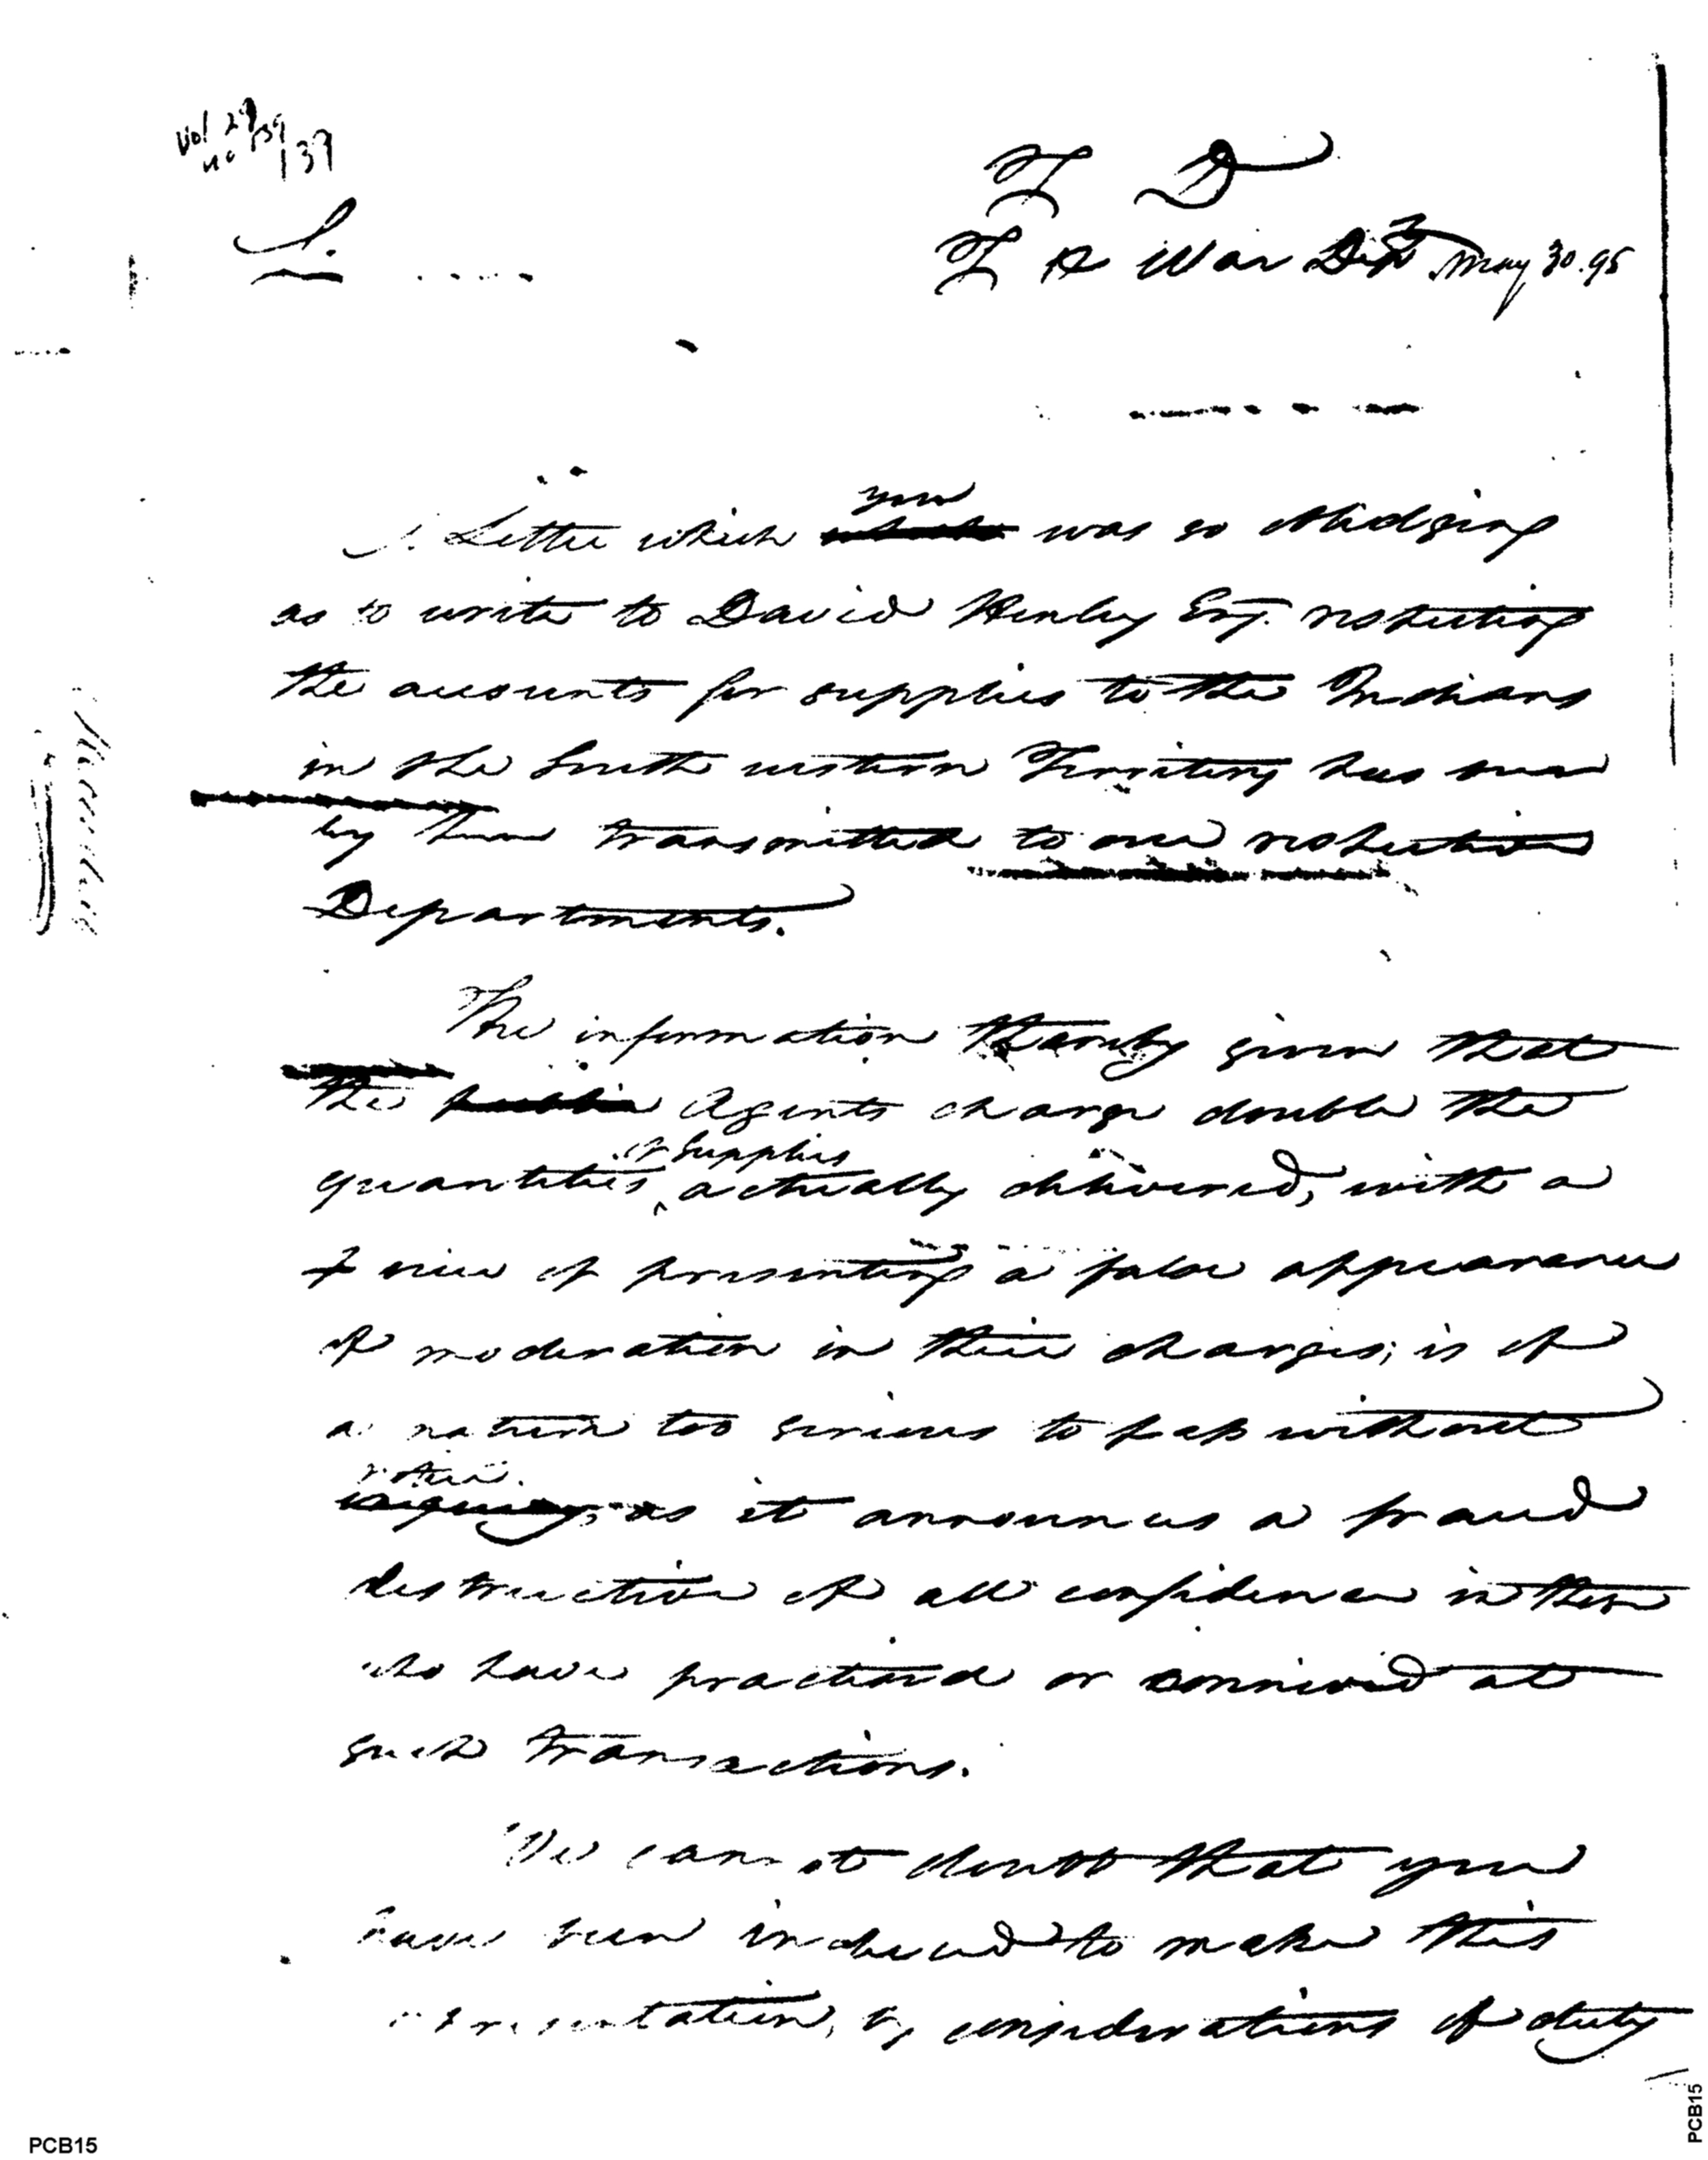 Vol 29
no 139
139
T D
S.
T & War Dept May 30. 95
A Letter which you was so obliging
as to write to David Henley Esq. respecting
the accounts for supplies to the Indians
in the South western Territory has been
by him transmitted to our respective
Departments.
The information thereby given that
the public Agents charge double the
of Supplies
quantities actually delivered, with a
view of presenting a false appearance
of moderation in their charges; is of
a nature too serious to pass without
notice.
inquiry, as it announces a fraud
destructive of all confidence in those
who have practised or connived at
such transactions.
We cannot doubt that you
have been induced to make this
representation, by considerations of duty
PCB15
PCB15